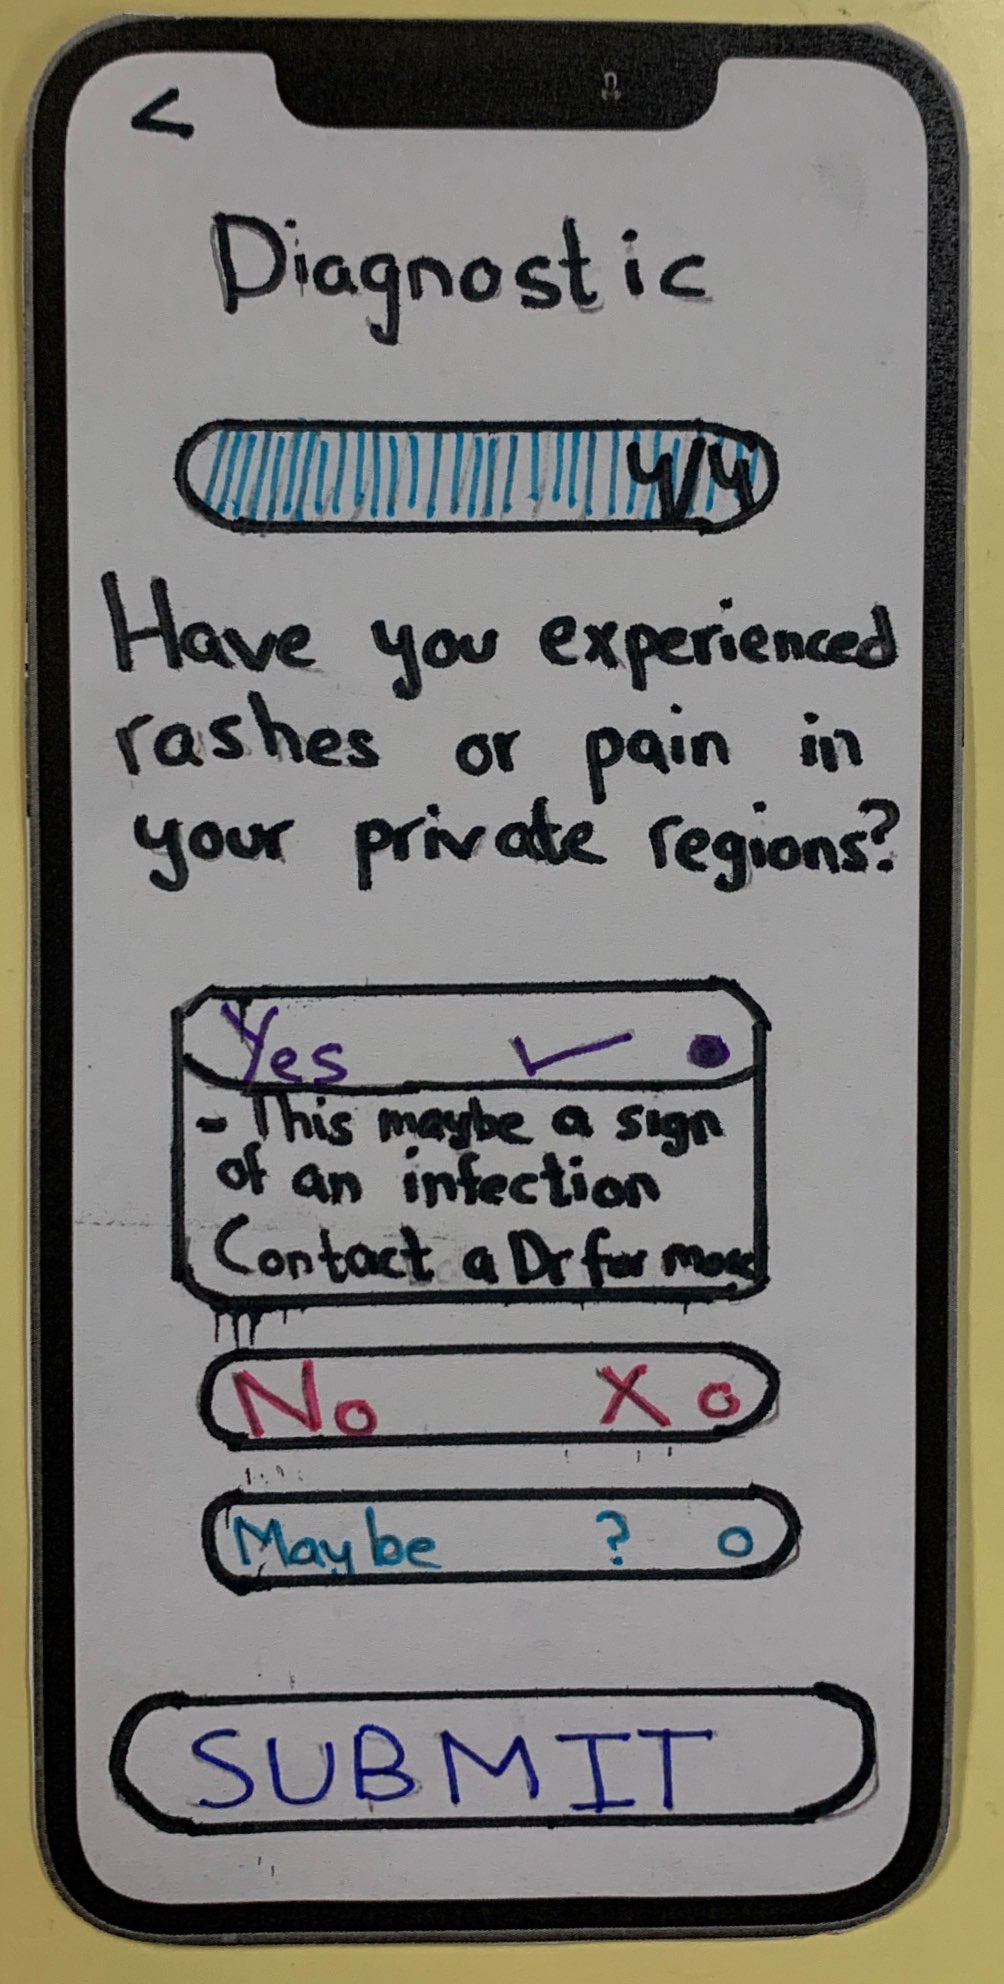 <
Diagnostic
4/4
Have you experienced
rashes or pain in
your private regions?
Yes ✓
- This maybe a sign
of an infection
Contact a Dr for more
No X
Maybe ?
SUBMIT